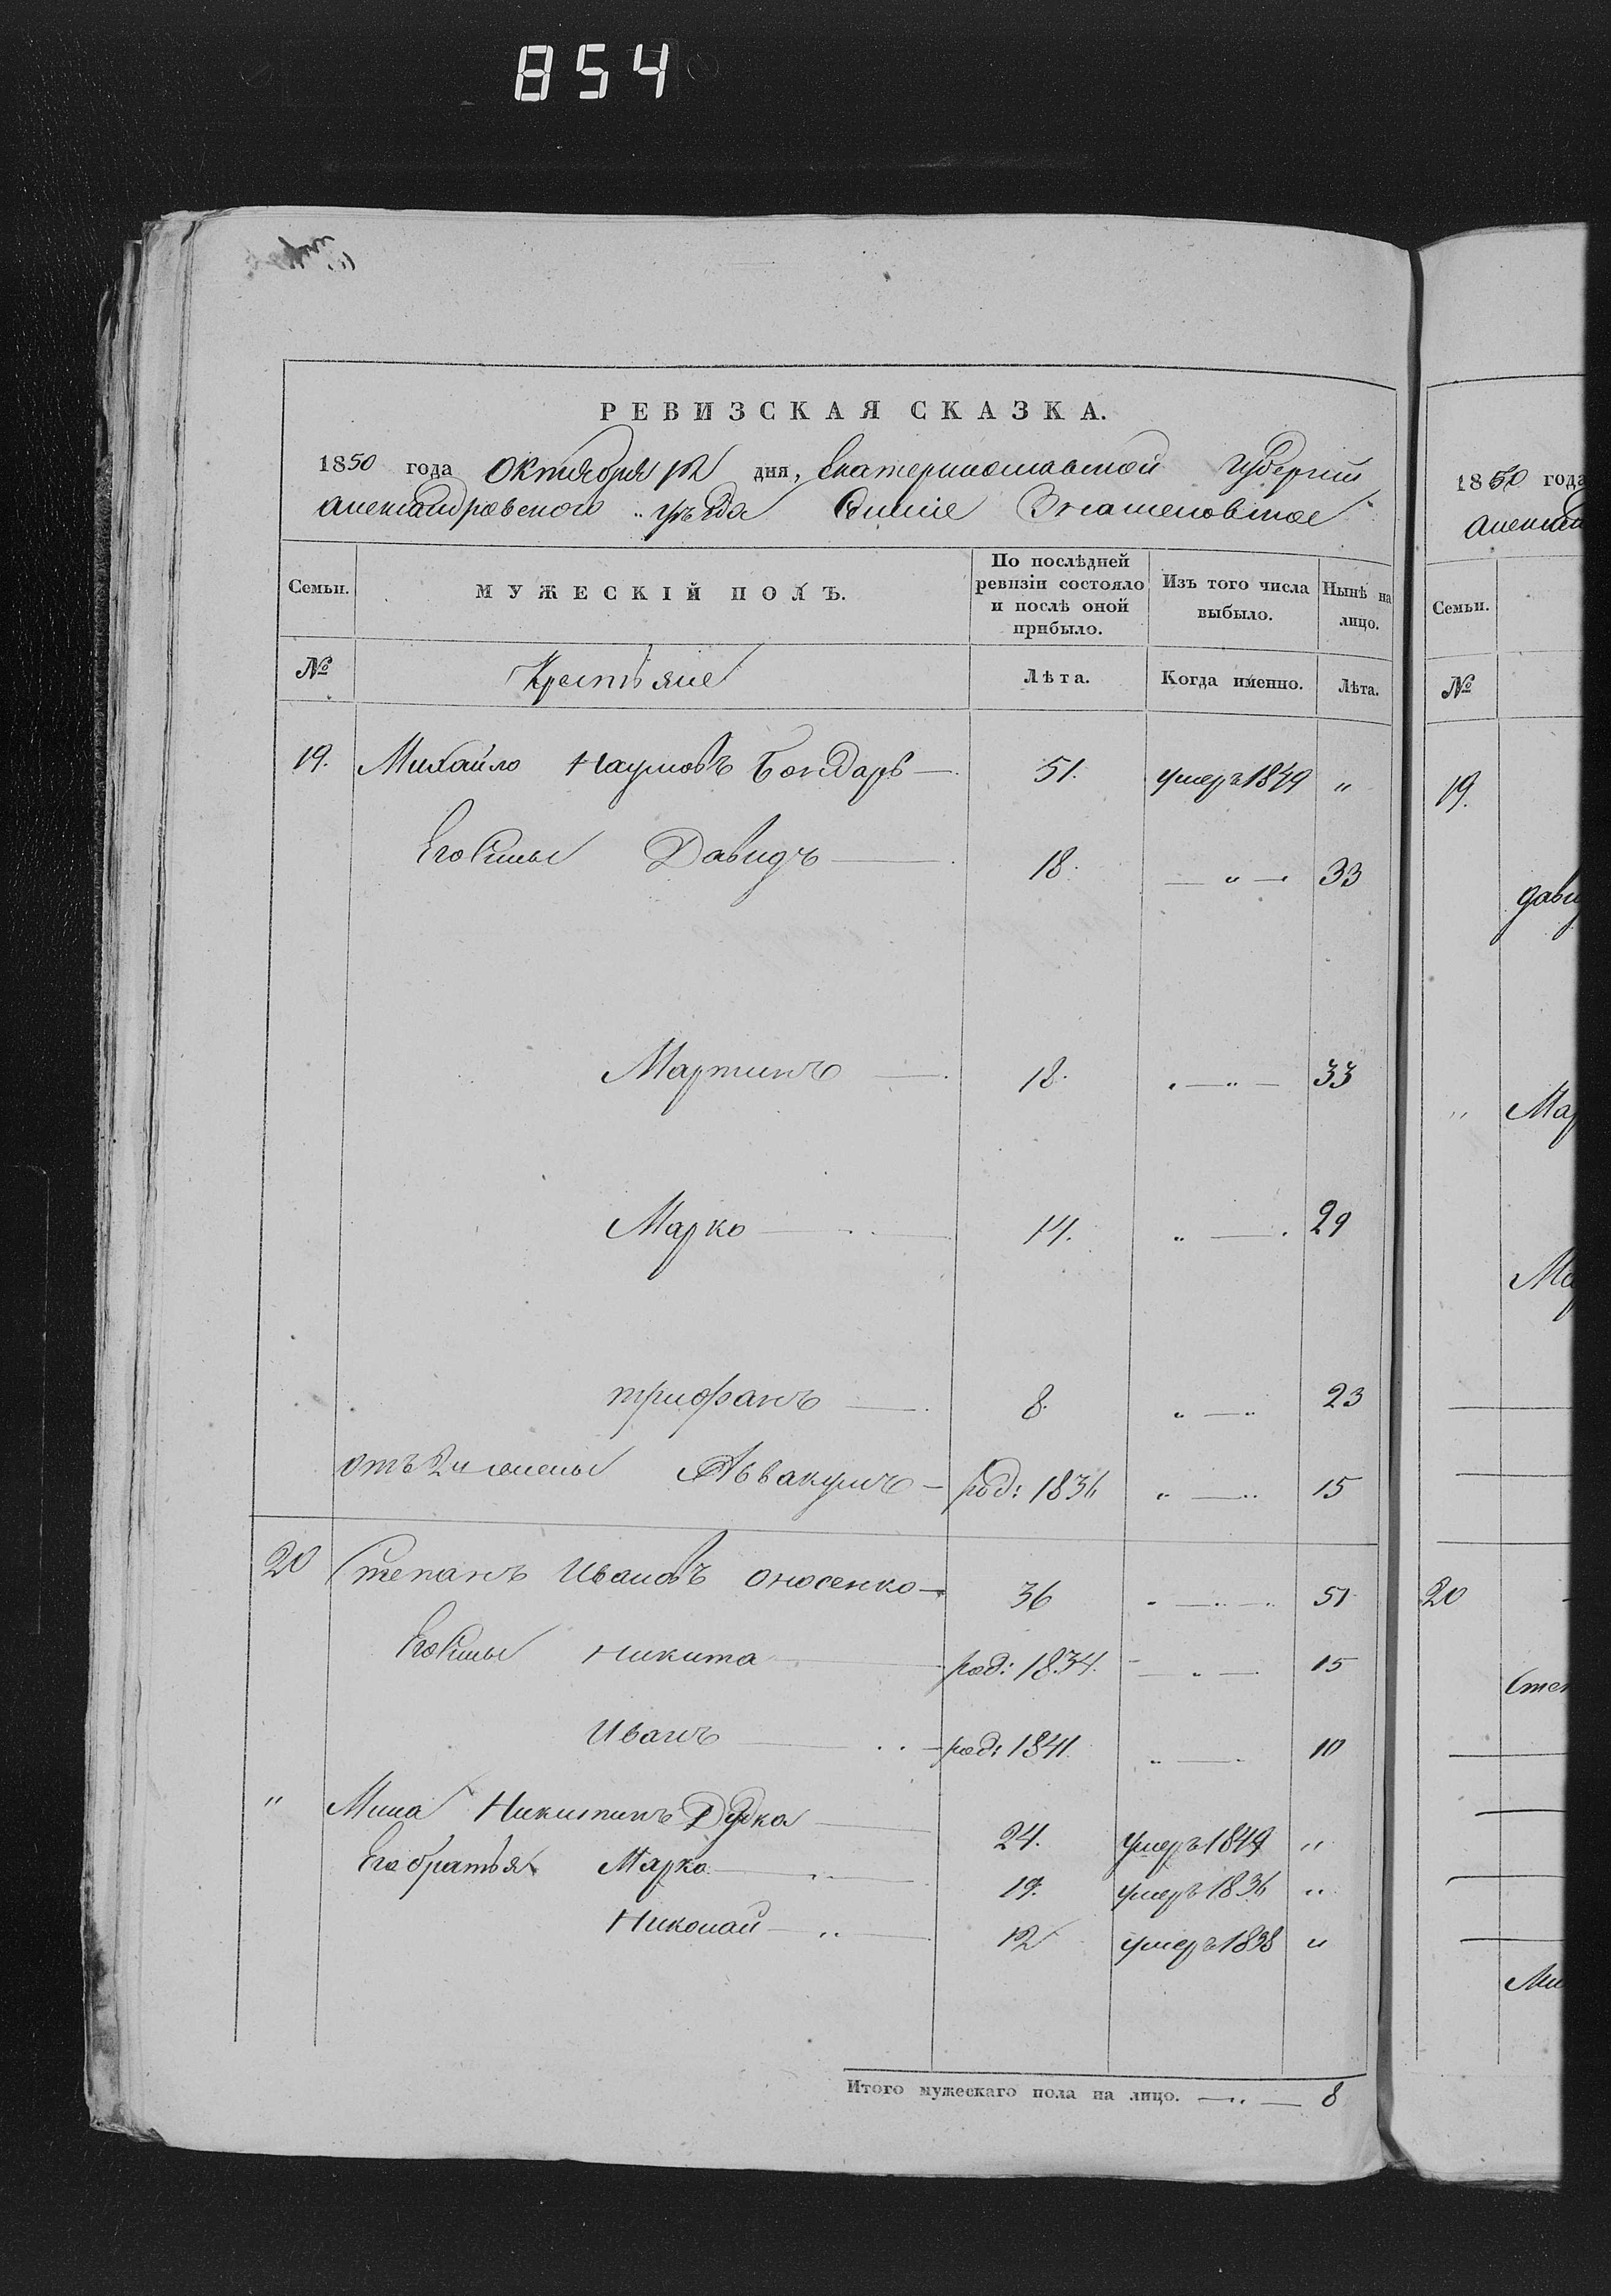 854
РЕВИЗСКАЯ СКАЗКА.
1850 года Октября 12 дня, Екатеринославской губерніи
Александровского уезда Знаменовское
Семьи.
МУЖЕСКІЙ ПОЛЪ.
По послѣдней ревизіи состояло и послѣ оной прибыло.
Изъ того числа выбыло.
Нынѣ на лицо.
№ Крестьяне Лѣта. Когда именно. Лѣта.
19. Михайло Наумовъ Бондарь — 51. умеръ 1849 "
Его Сыны Давидъ — 18. — " — 33
Мартинъ — 18. " — " — 33
Марко — 14. " — 29
трифанъ — 8. " — " 23
отъ 2й жены Аввакумъ — род: 1836 " — " 15
20 Степанъ Ивановъ Оносенко — 36 " — " — " 51
Его Сыны Никита — род: 1834. — " — 15
Иванъ — род: 1841. " — 10
" Мина Никитинъ Дудка — 24. умеръ 1849 "
Его братья Марко — 19. умеръ 1836 "
Николай — 12 умеръ 1838 "
Итого мужескаго пола на лицо. — " — 8
1850 года
Александ
Семьи.
№
19.
Дави
" Мар
Ма
20
Степ
Ми